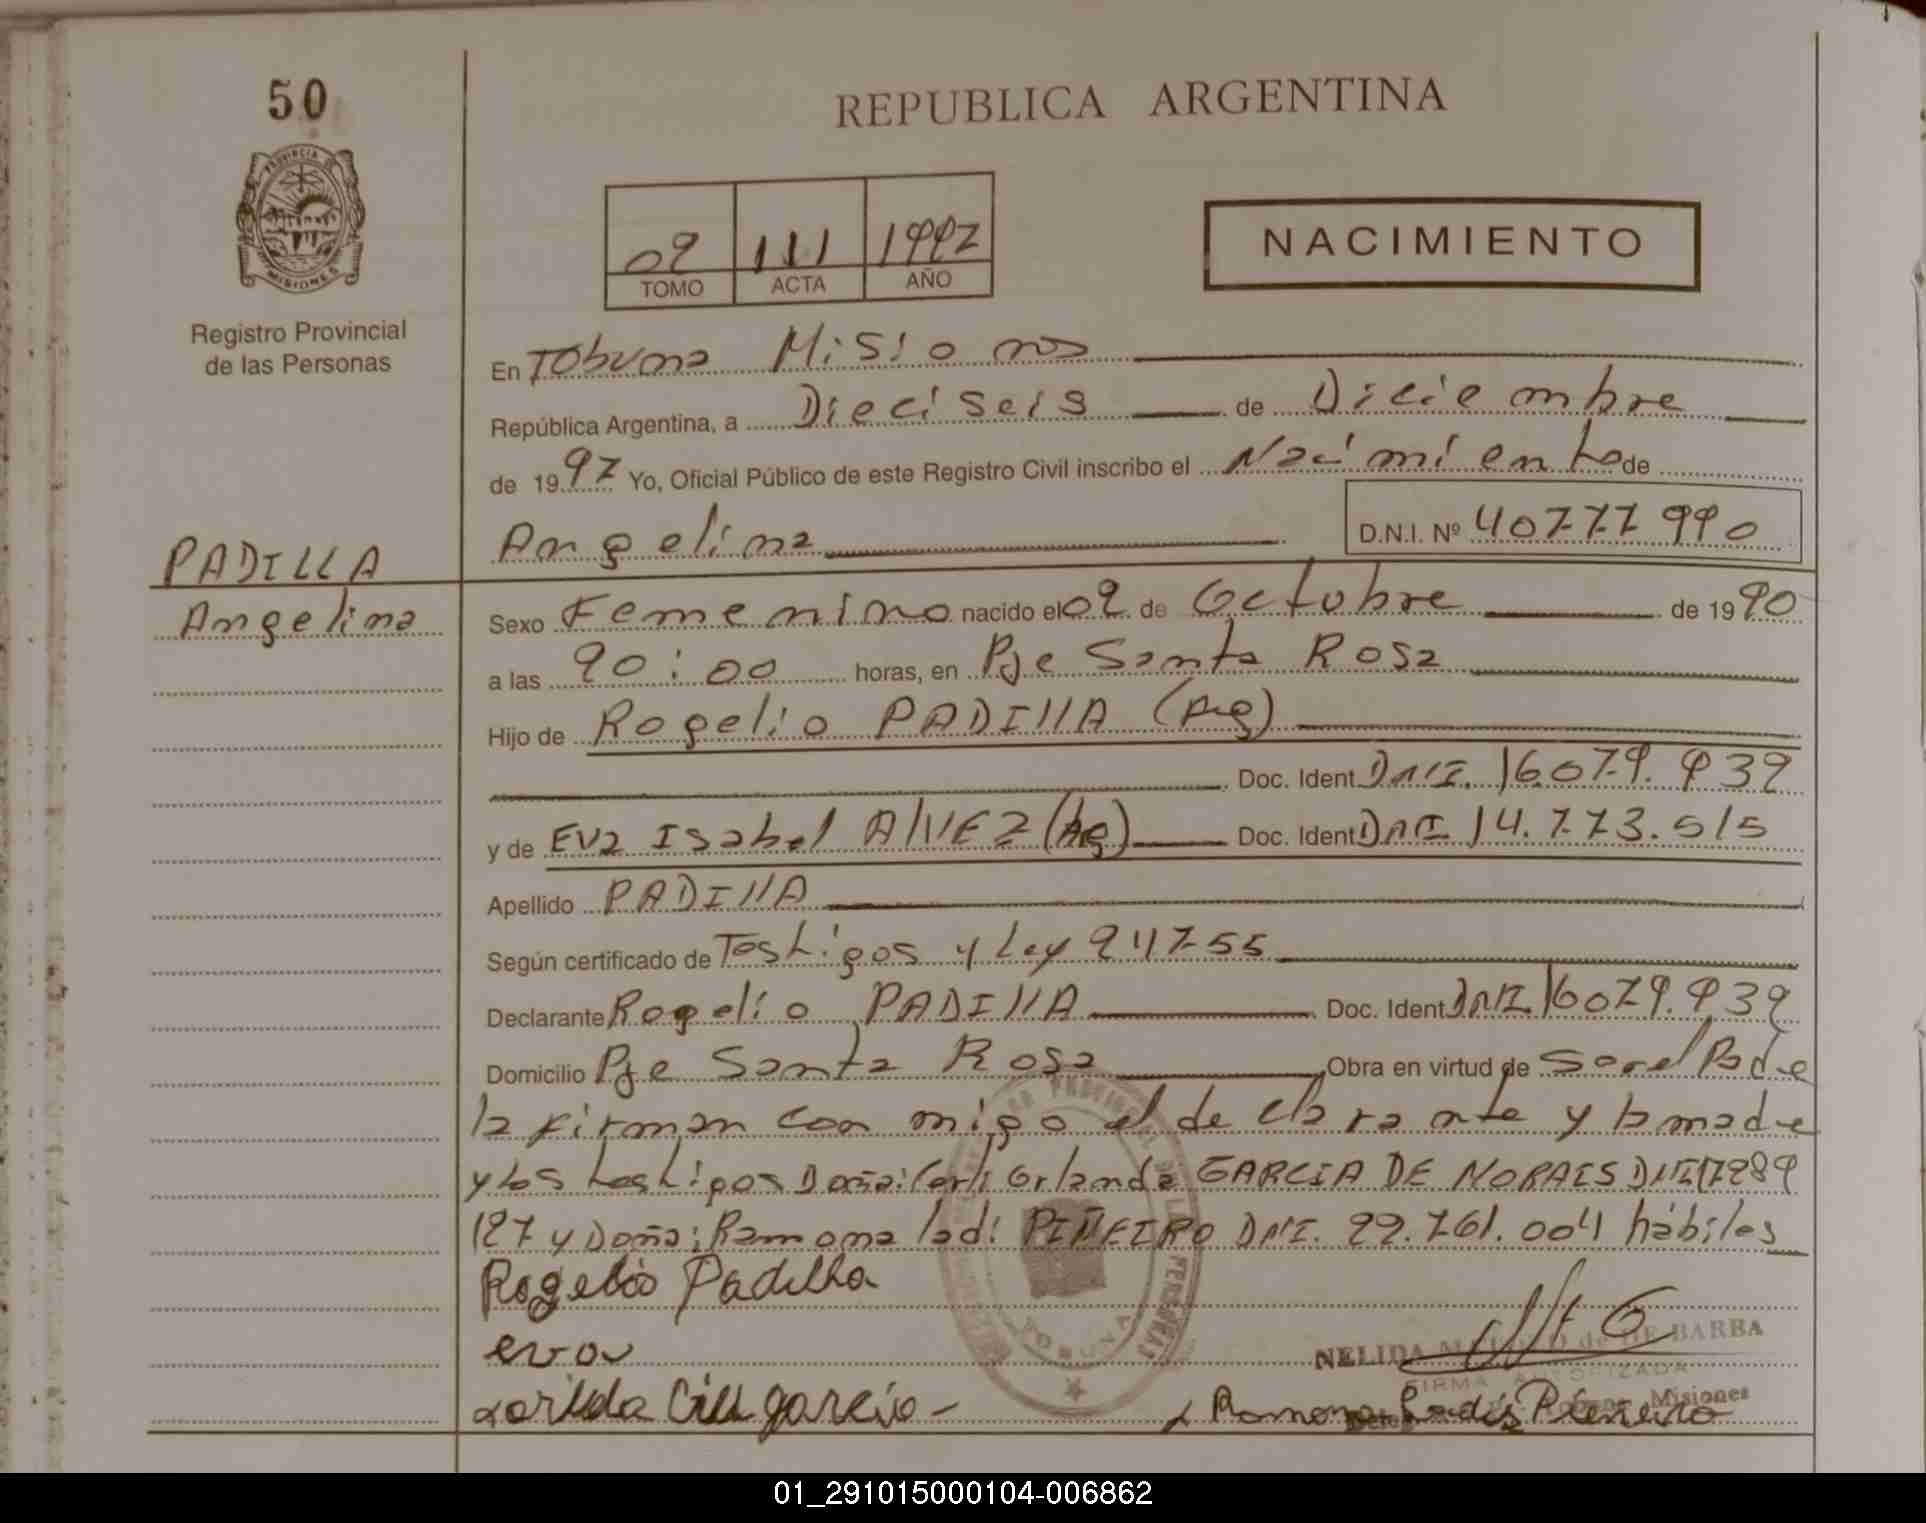 50
REPUBLICA ARGENTINA
PROVINCIA DE
MISIONES
Registro Provincial
de las Personas
02 111 1997
TOMO ACTA AÑO
NACIMIENTO
En Tobuna Misiones
República Argentina, a Dieciseis de Diciembre
de 1997 Yo, Oficial Público de este Registro Civil inscribo el Nacimiento de
Angelina D.N.I. Nº 40777990
PADILLA
Angelina
Sexo Femenino nacido el 02 de Octubre de 1990
a las 20:00 horas, en Pje Santa Rosa
Hijo de Rogelio PADIllA (Arg)
Doc. Ident DNI. 16.079.939
y de Eva Isabel AlVEZ (Arg) Doc. Ident DNI 14.773.515
Apellido PADIllA
Según certificado de Testigos y Ley 24755
Declarante Rogelio PADIllA Doc. Ident DNI 16079.939
Domicilio Pje Santa Rosa Obra en virtud de Ser el Padre
la firman con migo el declarante y la madre
y los testigos Doña: Orlanda GARCIA DE MORAIS DNI 17289
127 y Doña: Ramona ladi PIÑEIRO DNI. 22.761.004 hábiles
Rogelio Padilha
eva
garcia
NELIDA DE BARBA
FIRMA AUTORIZADA
Misiones
Ramona Ladis Piñeiro
TOBUNA
01_291015000104-006862